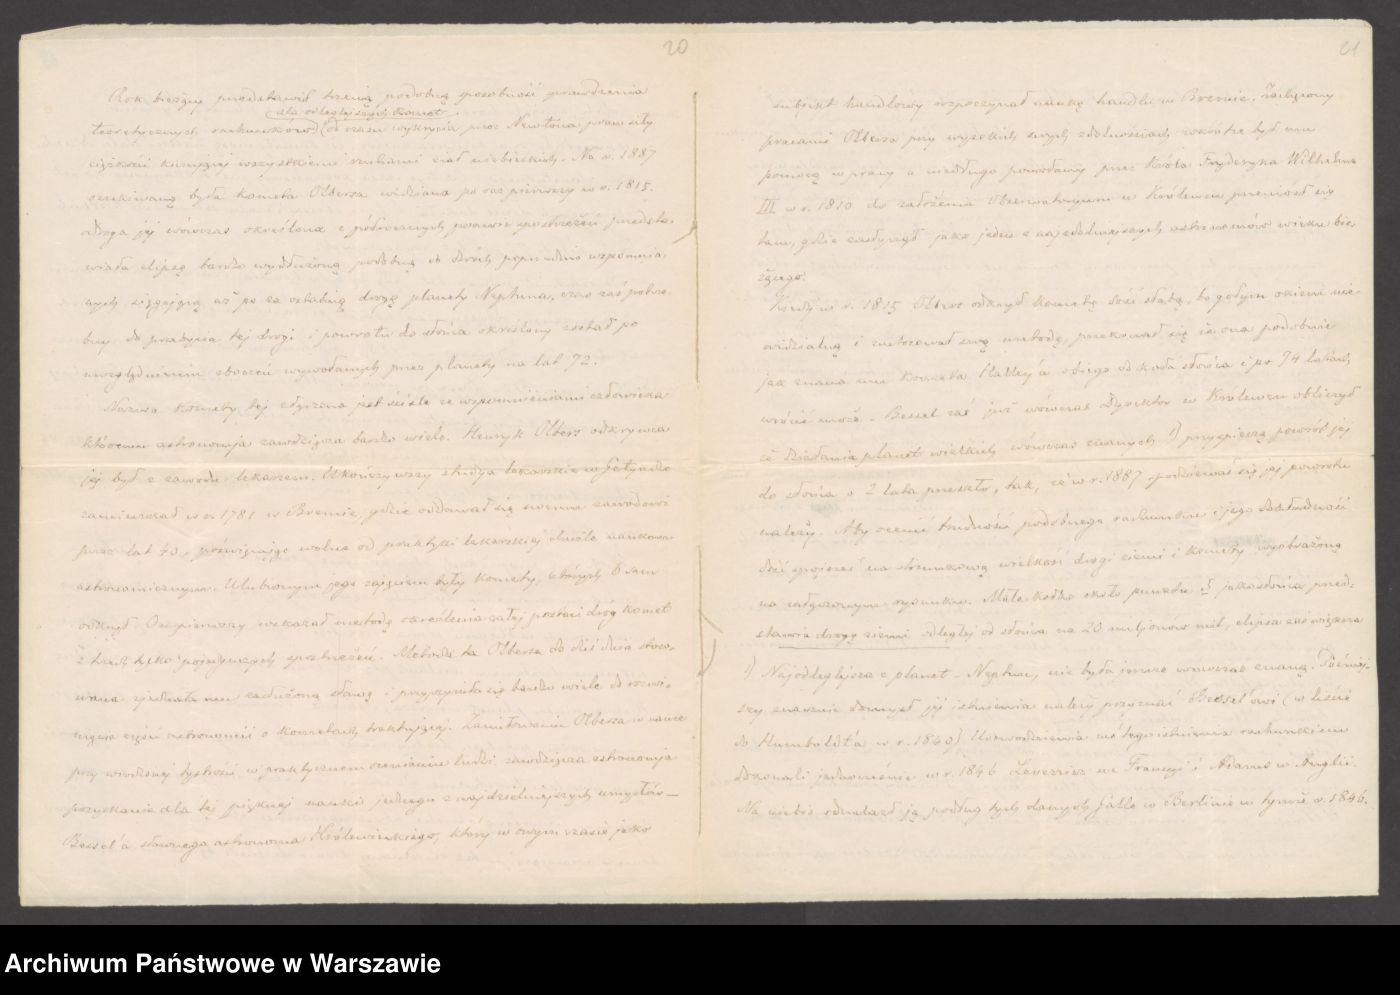 20
Rok bieżący przedstawił trzecią podobną sposobność sprawdzenia
dla odległych komet
teoretycznych rachunków (od czasu wykrycia przez Newtona prawa siły
ciężkości kierującej wszystkiemi ruchami ciał niebieskich. Na r. 1887
oczekiwaną była kometa Olbersa widziana po raz pierwszy w r. 1815.
Droga jej wówczas określona z półrocznych prawie spostrzeżeń przedsta-
wiała elipsę bardzo wydłużoną podobną do dwóch poprzednio wspomnia-
nych sięgającą aż po za ostatnią drogę planety Neptuna, czas zaś potrze-
bny do przebycia tej drogi i powrotu do słońca określony został po
uwzględnieniu zboczeń wywołanych przez planety na lat 72.
Nazwa komety tej złączona jest ściśle ze wspomnieniami człowieka
któremu astronomja zawdzięcza bardzo wiele. Henryk Olbers odkrywca
jej był z zawodu lekarzem. Ukończywszy studya lekarskie w Getyndze
zamieszkał w r. 1781 w Bremie, gdzie oddawał się swemu zawodowi
przez lat 40, poświęcając wolne od praktyki lekarskiej chwile naukom
astronomicznym. Ulubionym jego zajęciem były komety, których 6 sam
odkrył. On pierwszy wskazał metodę określenia całej postaci dróg komet
z trzech tylko pojedynczych spostrzeżeń. Metoda ta Olbersa do dziś dnia stoso-
wana zjednała mu zasłużoną sławę i przyczyniła się bardzo wiele do rozwi-
nięcia części astronomii o kometach traktującej. Zamiłowaniu Olbersa w nauce
przy wrodzonej bystrości w praktycznem ocenianiu ludzi zawdzięcza astronomja
pozyskanie dla tej pięknej nauki jednego z najdzielniejszych umysłów –
Bessel'a sławnego astronoma Królewieckiego, który w owym czasie jako
21
subjekt handlowy rozpoczynał naukę handlu w Bremie. Zachęcony
przez Olbersa przy wysokich swych zdolnościach wkrótce był mu
pomocą w pracy a niedługo powołany przez Króla Fryderyka Wilhelma
III. w r. 1810 do założenia Obserwatoryum w Królewcu przeniósł się
tam, gdzie zasłynął jako jeden z najzdolniejszych astronomów wieku bie-
żącego.
Kiedy w r. 1815 Olbers odkrył kometę dość słabą, bo gołym okiem nie-
widzialną i zastosował swą metodę, przekonał się że ona podobnie
jak znana mu kometa Halley'a obiega do koła słońca i po 74 latach
wrócić może. – Bessel zaś już wówczas Dyrektor w Królewcu obliczył
że działania planet wielkich wówczas znanych 1) przyspieszą powrót jej
do słońca o 2 lata przeszło, tak, że w r. 1887 spodziewać się jej powrotu
należy. Aby ocenić trudność podobnego rachunku i jego dokładność
dość spojrzeć na stosunkową wielkość drogi ziemi i komety wyobrażoną
na załączonym rysunku. Małe kółko około punktu S jako słońca przed-
stawia drogę ziemi odległej od słońca na 20 miljonów mil, elipsa zaś większa
1) Najodleglejsza z planet – Neptun, nie była jeszcze wówczas znaną. Później-
szy znacznie domysł jej istnienia należy przyznać Bessel'owi (w liście
do Humboldt'a w r. 1840) Udowodnienia zaś tego istnienia rachunkiem
dokonali jednocześnie w r. 1846 Leverrier we Francyi i Adams w Anglii.
Na niebie odnalazł ją podług tych danych Galle w Berlinie w tymże r. 1846.
Archiwum Państwowe w Warszawie